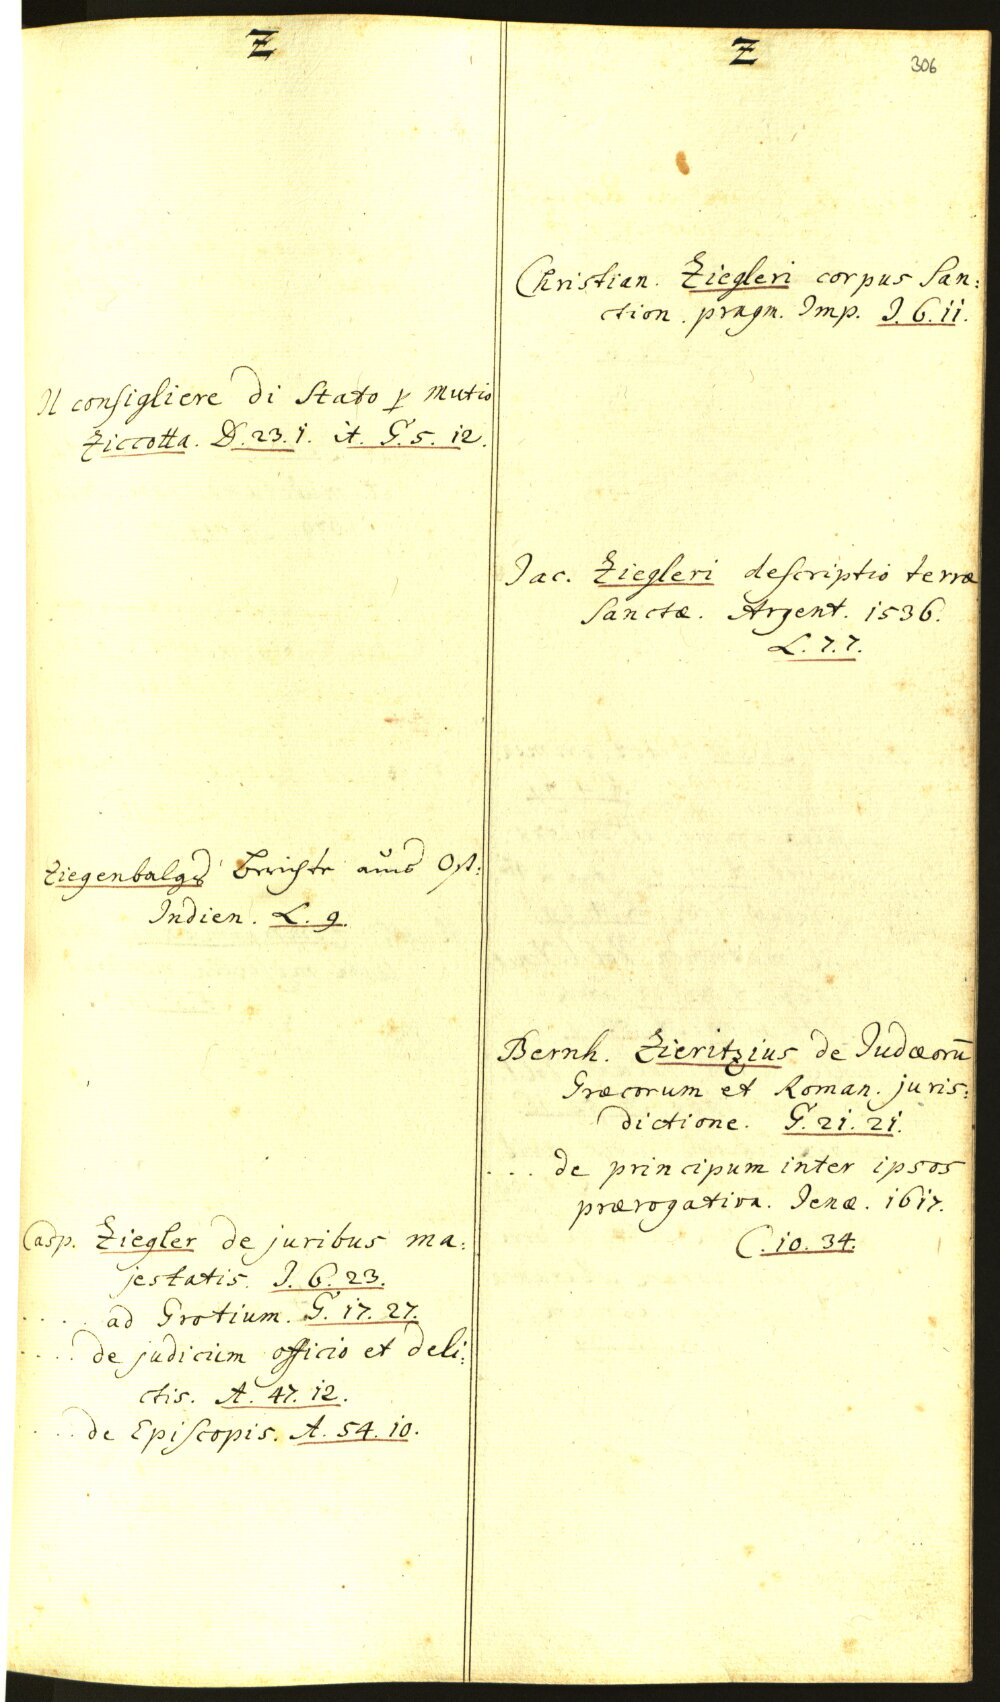 Z
Il consigliere di Stato p mutio
Ziccotta. D. 23. 1. it. G. 5. 12.
Ziegenbalgs Berichte aus Ost:
Indien. L. 9.
Casp. Ziegler de juribus ma:
jestatis. J. 6. 23.
. . . . ad Grotium. G. 17. 27.
. . . . de judicum officio et deli:
ctis. A. 47. 12.
. . . de Episcopis. A. 54. 10.
Z
306
Christian. Ziegleri corpus San:
ction. pragm. Imp. J. 6. 11.
Jac. Ziegleri descriptio terræ
Sanctæ. Argent. 1536.
L. 7. 7.
Bernh. Zieritzius de Judæorū
Græcorum et Roman. juris:
dictione. G. 21. 21.
. . . de principum inter ipsos
prærogativa. Jenæ. 1617.
C. 10. 34.